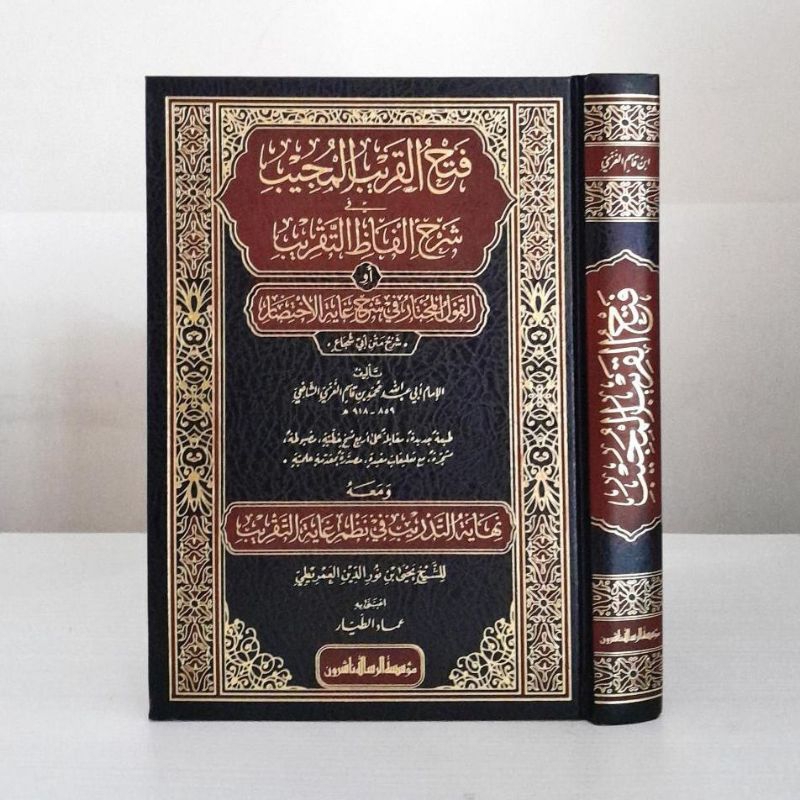 فَتْحُ القَرِيْبِ المُجِيْبِ
فِي
شَرْحِ أَلْفَاظِ التَّقْرِيْبِ
أَوْ
القَوْلُ المُخْتَارُ فِي شَرْحِ غَايَةِ الاخْتِصَارِ
شَرْحُ مَتْنِ أَبِي شُجَاعٍ
تَأْلِيْف
الإمام أبي عبد الله محمد بن قاسم الغَزِّيّ الشافعيّ
٨٥٩ - ٩١٨ هـ
طبعة جديدة، مقابلة على أربع نسخ خطّيّة، مضبوطة،
مع تعليقات مفيدة، مصدّرة بمقدمة علمية
وَمَعَهُ
نِهَايَةُ التَّدْرِيْبِ فِي نَظْمِ غَايَةِ التَّقْرِيْبِ
للشَّيْخ يَحْيَى بْن نُور الدِّين العِمْرِيْطِيّ
اعتنى به
عماد الطيار
مؤسسة الرسالة ناشرون
ابن قاسم الغزي
فَتْحُ القَرِيْبِ المُجِيْبِ
مؤسسة الرسالة ناشرون